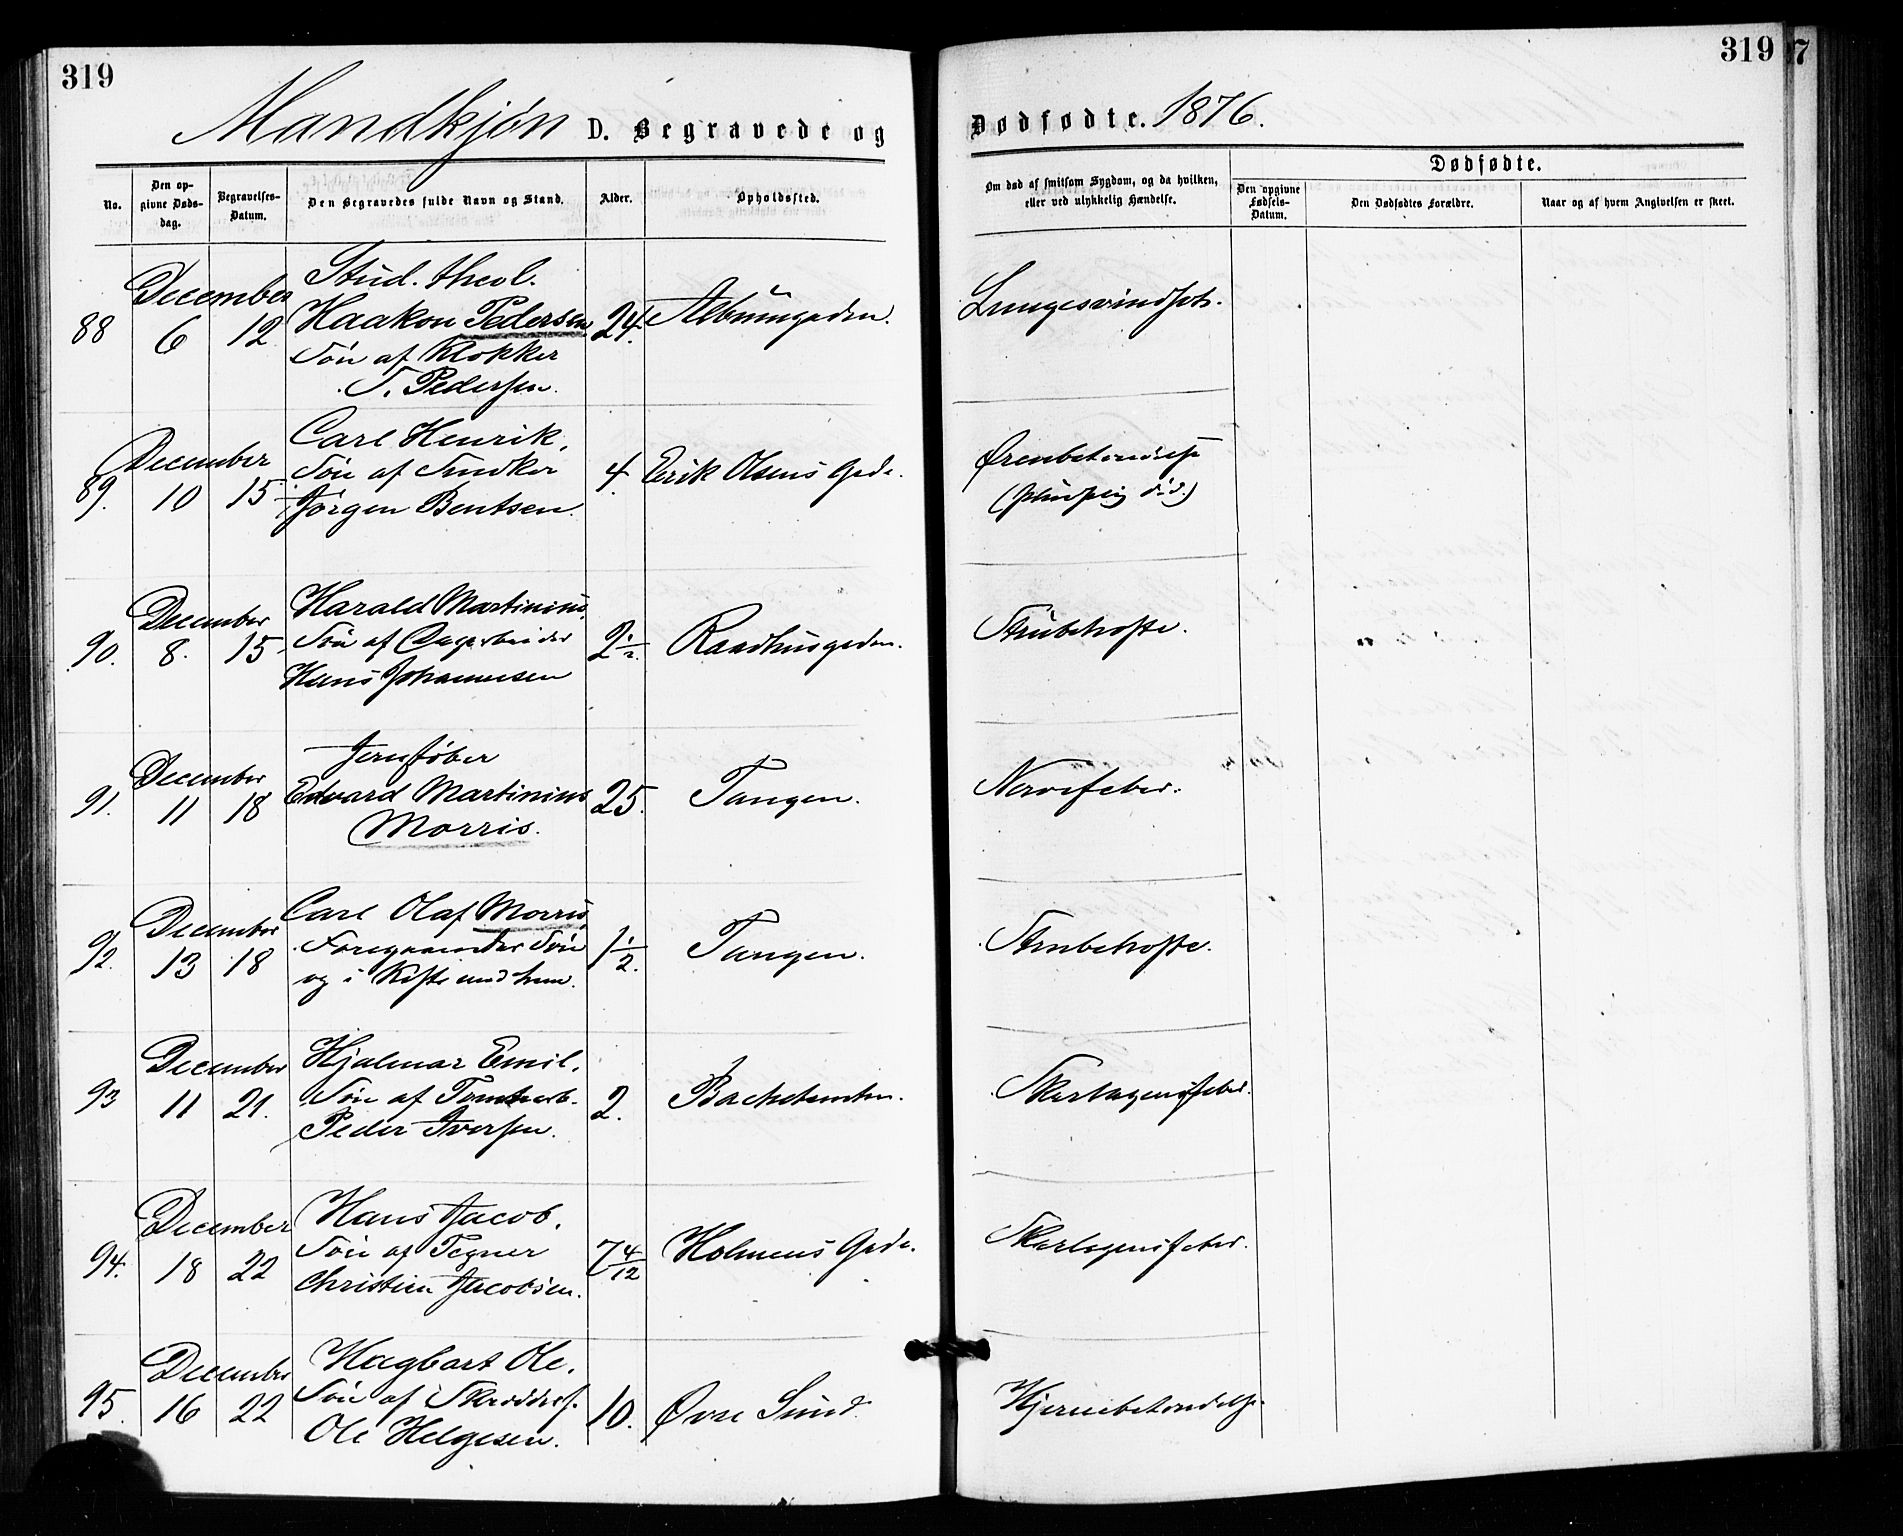 319
319
7
Mandkjøn D. Begravede og Dødfødte. 1876.
No.
Den opgivne Dødsdag.
Begravelses-Datum.
Den Begravedes fulde Navn og Stand.
Alder.
Opholdssted.
Om død af smitsom Sygdom, og da hvilken, eller ved ulykkelig Hændelse.
Dødfødte.
Den opgivne Fødsels-Datum.
Den Dødfødtes Forældre.
Naar og af hvem Angivelsen er skeet.
88 December 6 12
Stud. theol.
Haakon Pedersen
Søn af Klokker
T. Pedersen.
24. Albumgaden. Lungesvindsot.
89. December 10 15
Carl Henrik,
Søn af Snedker
Jørgen Bentsen.
4. Erik Olsens Gade.
(pludselig død.)
90. December 8. 15
Harald Martinius,
Søn af Dagarbeider
Hans Johannesen
2 1/2. Raadhusgaden. Strubehoste.
91. December 11 18
Jernstøber
Edvard Martinius
Morris.
25. Tangen. Nervefeber.
92. December 13 18
Carl Olaf Morris,
Foregaaendes Søn
og i Kiste med ham.
1 1/2. Tangen. Strubehoste.
93 December 11 21.
Hjalmar Emil,
Søn af Tomtearb.
Peder Iversen.
2. Skarlagensfeber.
94. December 18 22
Hans Jacob,
Søn af Tegner
Christian Jacobsen.
7 4/12 Holmens Gade. Skarlagensfeber.
95. December 16 22
Hagbart Ole,
Søn af Skrædders.
Ole Helgesen.
10. Øvre Sund. Hjernebetændelse.